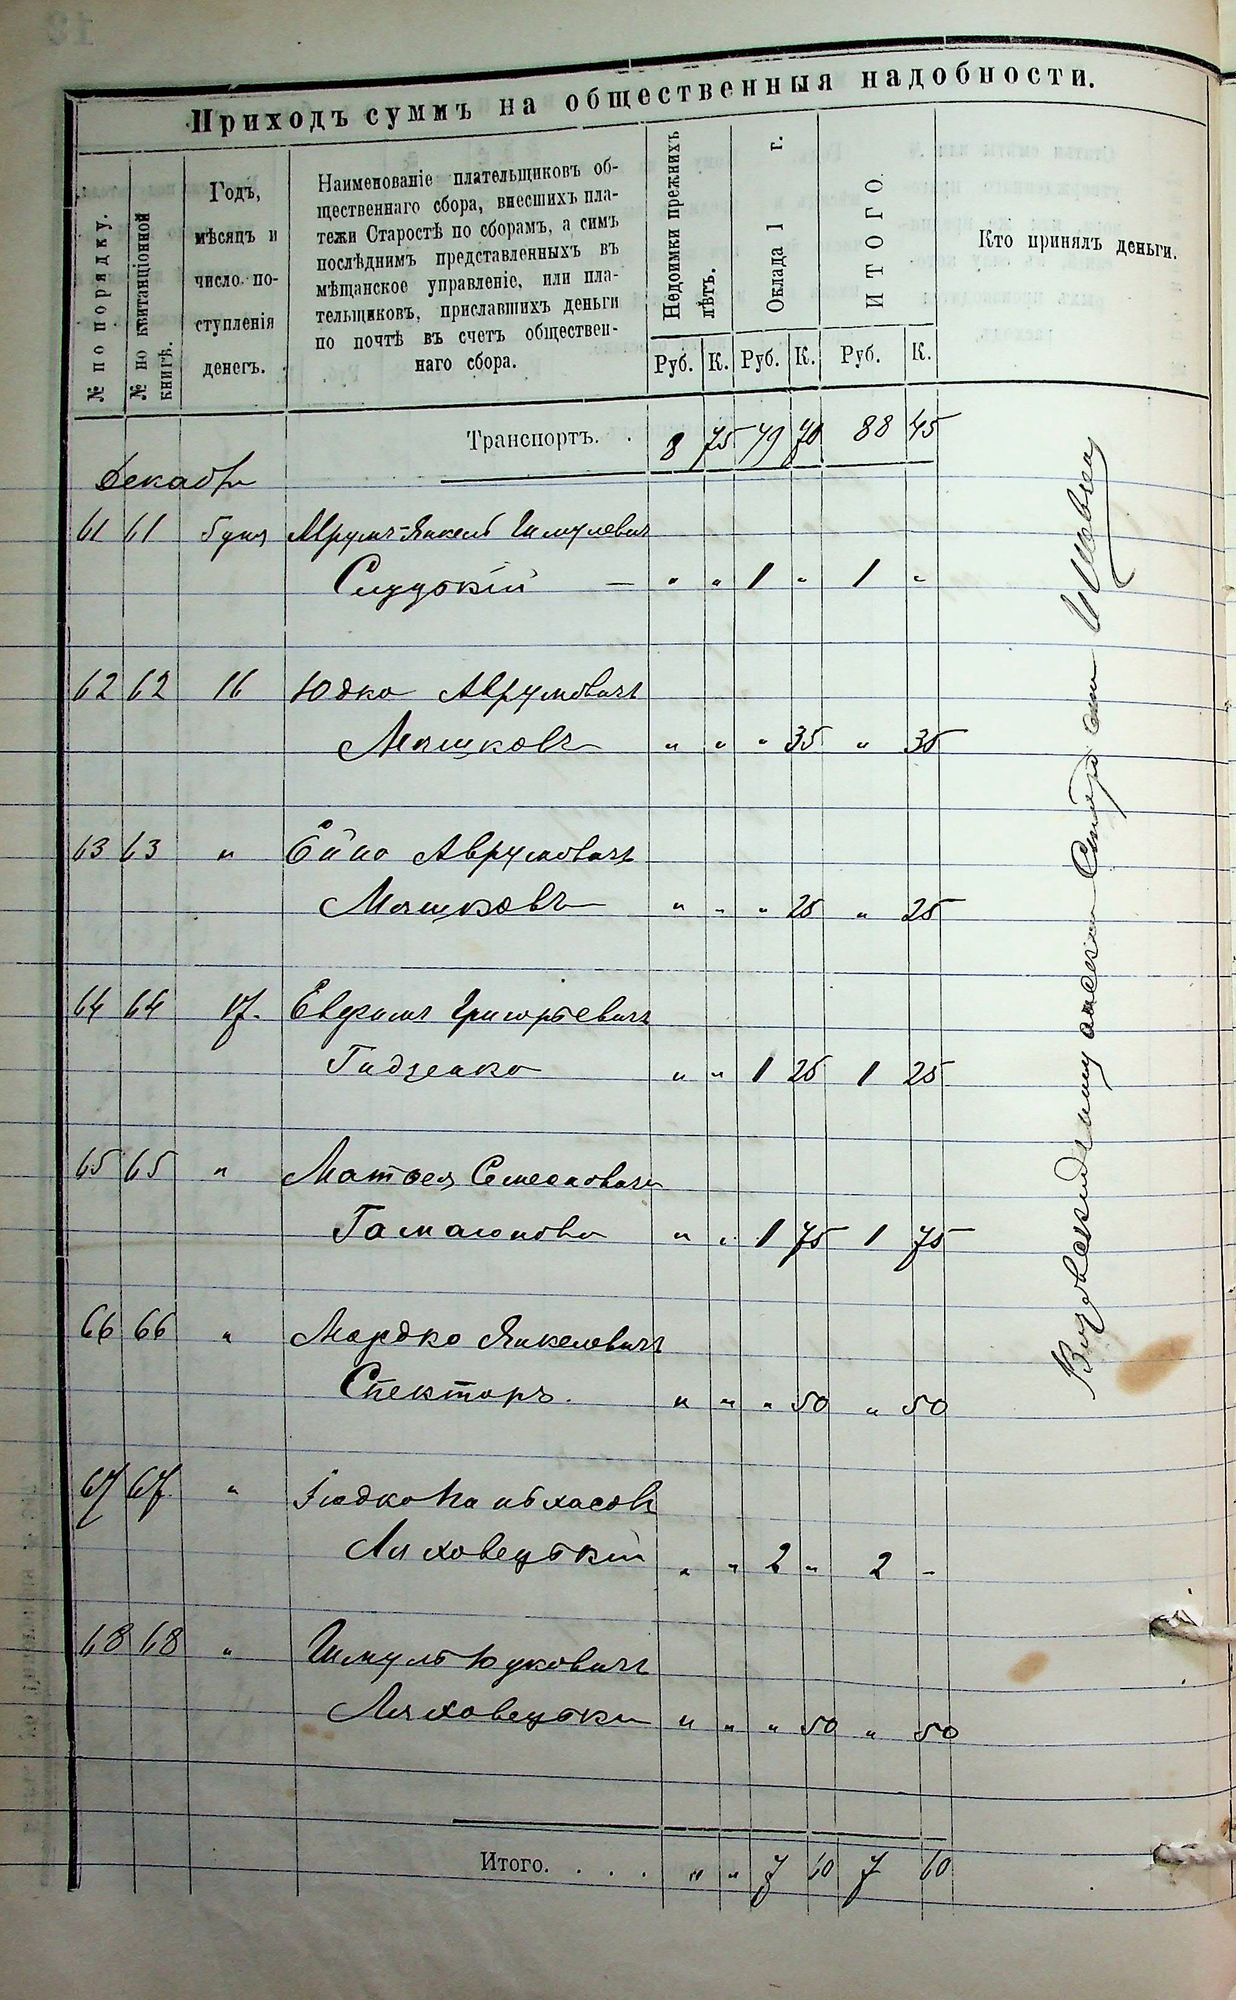 Приходъ суммъ на общественныя надобности.
№ по порядку.
№ по квитанціонной
книгѣ.
Годъ,
мѣсяцъ и
число по-
ступленія
денегъ.
Наименованіе плательщиковъ об-
щественнаго сбора, внесшихъ пла-
тежи Старостѣ по сборамъ, а симъ
послѣднимъ представленныхъ въ
мѣщанское управленіе, или пла-
тельщиковъ, приславшихъ деньги
по почтѣ въ счетъ обществен-
наго сбора.
Недоимки прежнихъ
лѣтъ.
Оклада 1 г.
ИТОГО.
Кто принялъ деньги.
Руб. К. Руб. К. Руб. К.
Транспортъ. . 8 75 79 70 88 45
Декабр
61 61 5 дня Аврумъ-Янкель Шмулевич
Слуцкій — " " 1 " 1 "
62 62 16 Юдко Аврумовичъ
Машковъ " " " 35 " 35
63 63 " Аврумовичъ
Машковъ " " " 25 " 25
64 64 17. Евфимъ Григорьевичъ
" " 1 25 1 25
65 65 " Матвей Семеновичъ
" " 1 75 1 75
66 66 " Мордко Янкелевичъ
Спекторъ. " " " 50 " 50
67 67 "
Ляховецкій " " 2 " 2 "
68 68 " Шмуль
Ляховецкій " " " 50 " 50
Итого. . . . " " 7 60 7 60